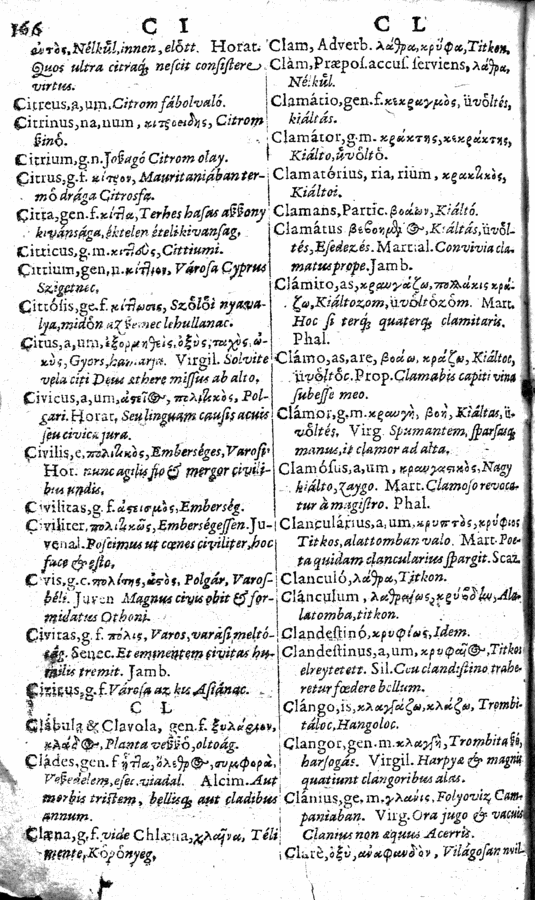 166 C I C L
αυτὸς, Nélkül, innen, elött. Horat.
Quos ultra citraq; nescit consistere
virtus.
Citreus, a, um, Citrom fábolvaló.
Citrinus, na, num, κιτροειδὴς, Citrom
Citrium, g.n. Citrom olay.
Citrus, g.f. κίτρον, Mauritaniában ter-
mö drága Citrosfa.
Citta, gen.f. κίτ7α, Terhes hasas aßßony
kivánsága, éktelen étel kivansag,
Citticus, g.m. Cittiumi.
Cittium, gen, n. κίτ7ιον, Városa Cyprus
Szigetnec,
Cittósis, ge.f. κίτ7ωσις, Szölöi nyava-
lya, midön az lehullanac.
Citus, a, um, ὀξὺς, ταχὺς, ὠ-
κὺς, Gyors, Virgil. Solvite
vela citi Deus æthere missus ab alto,
Civicus, a, um, Pol-
gari. Horat, Seu linguam causis acuis
seu civica jura.
Civilis, e, Emberséges, Varosi
Hor. nunc agilis fio & mersor civili-
bus undis,
Civilitas, g.f. ἀστεισμὸς, Emberség.
Civiliter, Emberségessen. Ju-
venal. Poscimus ut cœnes civiliter, hoc
face & esto,
Civis, g.c. πολίτης, ἀστὸς, Polgár, Varos-
béli. Juven Magnus civis obit & for-
midatus Othoni.
Civitas, g.f. πόλις, Varos, varasi meltó-
ság. Senec. Et eminentem civitas hu-
milis tremit. Jamb.
Cizicus, g.f. Városa az kis Asiánac.
C L
Clábula & Clavola, gen.f.
Planta oltoág.
Clades, gen.f. συμφορὰ,
Veßedelem, eset, viadal. Alcim. Aut
morbis tristem, bellisq; aut cladibus
annum.
Clæna, g.f. vide Chlæna, χλαῖνα, Téli
mente, Köpönyeg,
Clam, Adverb. λάθρα, κρύφα, Titkon,
Clàm, Præpos. accus. serviens, λάθρα,
Nélkül.
Clamátio, gen.f. κεκραγμὸς, üvöltés,
kiáltás.
Clamátor, g.m. κράκτης, κεκράκτης,
Kiálto, üvöltö.
Clamatórius, ria, rium, κρακτικὸς,
Kiáltoi.
Clamans, Partic. βοάων, Kiáltó.
Clamátus Kiáltás, üvöl-
tés, Esedezés. Martial. Convivia cla-
matus prope. Jamb.
Clámito, as, κραυγάζω, πολλάκις κρά-
ζω, Kiáltozom, üvöltözöm. Mart.
Hoc si terq; quaterq; clamitaris.
Phal.
Clámo, as, are, βοάω, κράζω, Kiáltoc,
üvöltöc. Prop. Clamabis capiti vina
subesse meo.
Clámor, g.m. κραυγὴ, βοὴ, Kiáltas, ü-
völtés, Virg. Spumantem, sparsasq;
manus, it clamor ad alta,
Clamósus, a, um, κραυγαστικὸς, Nagy
kiálto, zaygo. Mart. Clamoso revoca-
tur à magistro. Phal.
Clanculárius, a, um, κρυπτὸς, κρύφιος
Titkos, alattomban valo. Mart. Poë-
ta quidam clancularius spargit. Scaz.
Clanculó, λάθρα, Titkon.
Clánculum, Ala-
latomba, titkon.
Clandestinó, κρυφίως, Idem.
Clandestinus, a, um, Titkos
elreytetett. Sil. Ceu clandestino trahe-
retur fœdere bellum.
Clángo, is, κλαγγάζω, κλάζω, Trombi-
táloc, Hangoloc.
Clangor, gen.m. κλαγγὴ, Trombitaßó,
harsogás. Virgil. Harpyæ & magnis
quatiunt clangoribus alas.
Clánius, ge.m. γλάνις. Folyoviz Cam-
paniaban. Virg. Ora jugo & vacuis
Clanius non æquus Acerris.
Clarè, ὀξὺ, ἀναφανδὸν, Világosan nvil-